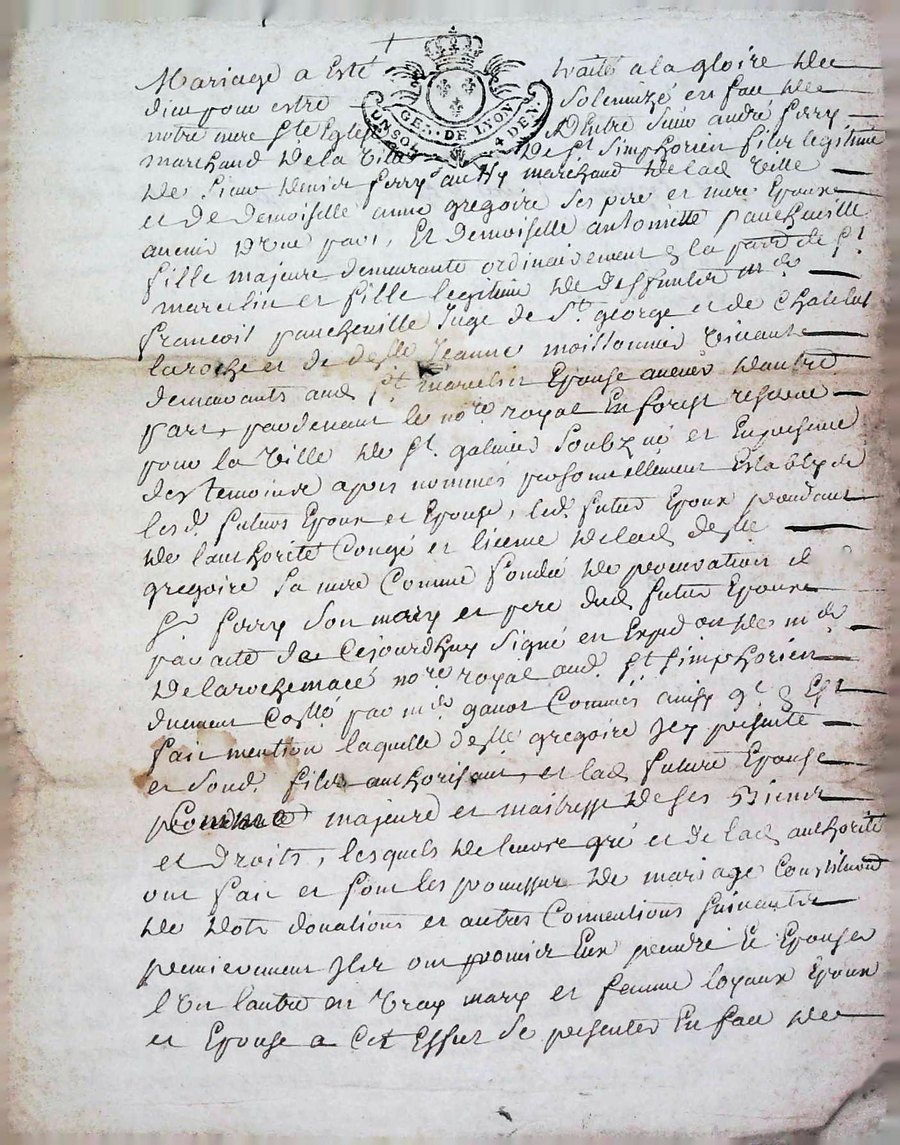 Mariage a Esté traité a la gloire de
GEN. DE LYON
UN SOL 4 DEN.
dieu pour estre Solemnizé en face de
notre mere Ste Eglise Entre Sieur andré ferry
marchand de la Ville de St Simphorien fils legitime
de Sieur denis ferry aussy marchand de lad. Ville
et de Demoiselle anne gregoire ses pere et mere Epoux
avenir D'une part, Et Demoiselle antoinette paucheville
fille majeure demeurante ordinairement a la parr. de St
marcelin et fille legitime de deffunt mr
francois paucheville Juge de St. george et de Chatelus
laroche et de delle Jeanne moissonnier Vivante
demeurants aud. St marcelin Epouse avenir dautre
part, pardevant le nore royal En forest reservé
pour la Ville de St. galmier Soubzné et En presence
des temoins apres nommés personnellement Establys
lesd. futurs Epoux et Epouse, led. futur Epoux procedant
de lauthorité Congé et licence de lad. delle
gregoire Sa mere Comme fondée de procuration d
Sr ferry Son mary et pere dud. futur Epoux
par acte de Cejourdhuy Signé en Expedon de me
Delarochemacé nore royal aud. St Simphorien
duement Collé par me ganot Commis ainsy qt y Est
fait mention laquelle delle gregoire Jcy presente
et Sond. fils authorisant, et lad. future Epouse
Comme majeure et maitresse de ses Biens
et droits, lesquels de leur gré et de lad. authorité
ont fait et font les promesses de mariage Constitution
de dots donations et autres Conventions Suivantes
premierement Jls ont promis Eux prendre et Epouser
l'Un lautre en Vray mary et femme loyaux Epoux
et Epouse a Cet Effet Se presenter En face de